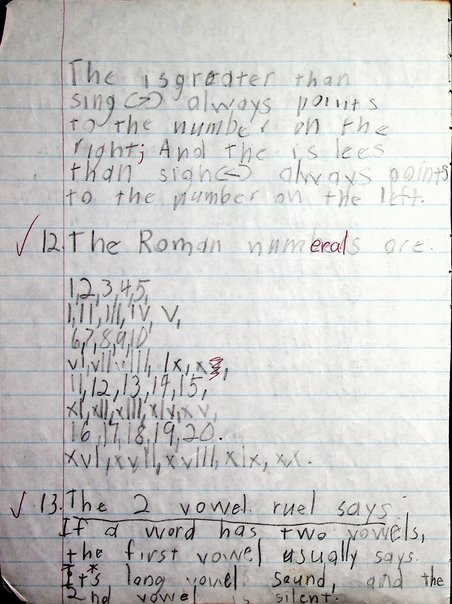 The is greater than
sing (>) always points
to the number on the
right; And the is lees
than sign (<) always points
to the number on the left.
12. The Roman numerals are.
1,2,3,4,5,
I,II,III,IV,V,
6,7,8,9,10
VI,VII,VIII,IX,X,
11,12,13,14,15,
XI,XII,XIII,XIV,XV,
16,17,18,19,20.
XVI,XVII,XVIII,XIX,XX.
13. The 2 vowel ruel says
If a word has two vowels,
the first vowel usually says
It*s long vowel sound, and the
2nd vowel is silent.